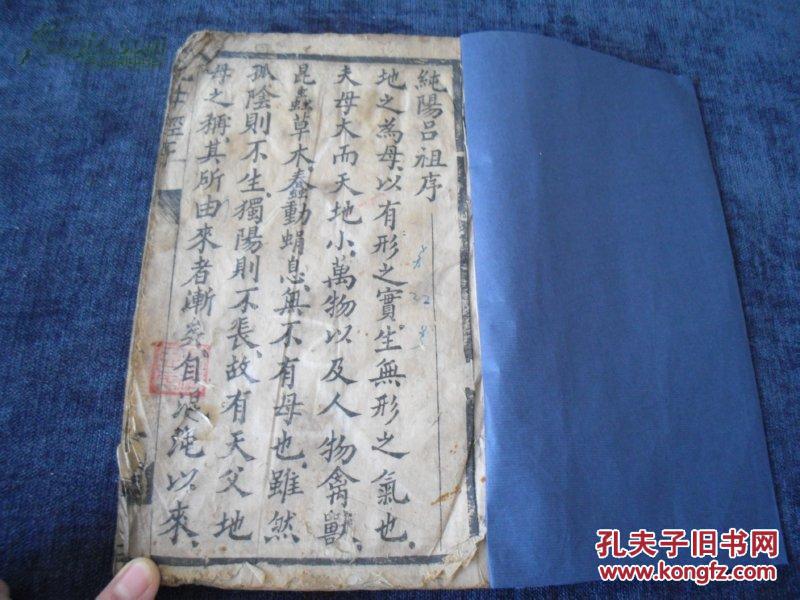 純陽呂祖序
地之為母、以有形之實、生無形之氣也、
夫母大而天地小、萬物以及人物禽獸、
昆蟲草木、蠢動蜎息、無不有母也、雖然
孤陰則不生、獨陽則不長、故有天父地
母之稱、其所由來者漸矣、自混沌以來、
母經序
孔夫子旧书网
www.kongfz.com